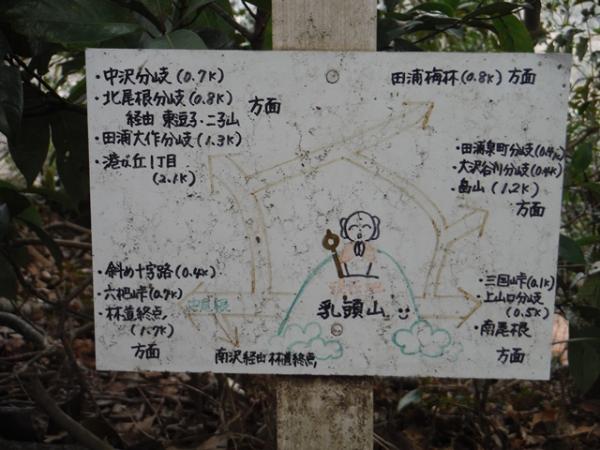 ・中沢分岐(0.7K)
・北尾根分岐(0.8K)
経由 東逗子・二子山
方面
・田浦大作分岐(1.3K)
・港が丘1丁目
(2.1K)
田浦梅林(0.8K) 方面
・田浦泉町分岐(0.4K)
・大沢谷川分岐(0.4K)
・畠山(1.2K)
方面
・斜め十字路(0.4K)
・六把峠(0.9K)
・林道終点
(1.7K)
方面
中尾根
南沢経由林道終点
乳頭山
・三国峠(0.1K)
・上山口分岐
(0.5K)
・南尾根
方面